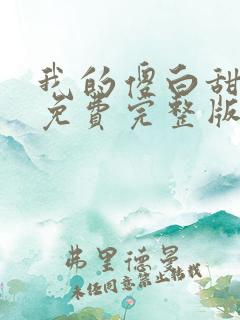 我的傻白甜
免费完整版
弗里德曼
未经同意禁止转载